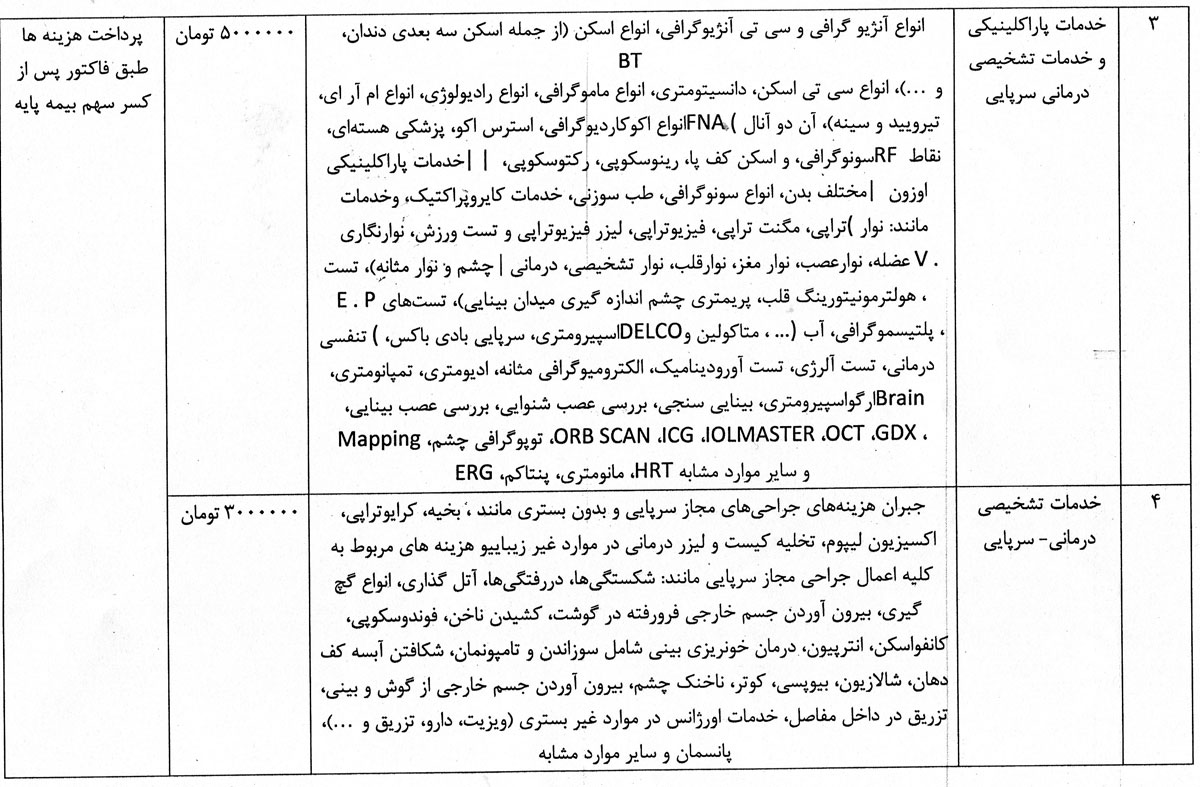 ۳
خدمات پاراکلینیکی
و خدمات تشخیصی
درمانی سرپایی
انواع آنژیو گرافی و سی تی آنژیوگرافی، انواع اسکن (از جمله اسکن سه بعدی دندان،
BT
و ...)، انواع سی تی اسکن، دانسیتومتری، انواع ماموگرافی، انواع رادیولوژی، انواع ام آر ای،
تیرویید و سینه)، آن دو آنال )FNAانواع اکوکاردیوگرافی، استرس اکو، پزشکی هسته‌ای،
نقاط RFسونوگرافی، و اسکن کف پا، رینوسکوپی، رکتوسکوپی، | |خدمات پاراکلینیکی
اوزون |مختلف بدن، انواع سونوگرافی، طب سوزنی، خدمات کایروپراکتیک، وخدمات
مانند: نوار )تراپی، مگنت تراپی، فیزیوتراپی، لیزر فیزیوتراپی و تست ورزش، نوارنگاری
. V عضله، نوارعصب، نوار مغز، نوارقلب، نوار تشخیصی، درمانی | چشم و نوار مثانه)، تست
، هولترمونیتورینگ قلب، پریمتری چشم اندازه گیری میدان بینایی)، تست‌های E . P
، پلتیسموگرافی، آب (... ، متاکولین وDELCOاسپیرومتری، سرپایی بادی باکس، ) تنفسی
درمانی، تست آلرژی، تست آورودینامیک، الکترومیوگرافی مثانه، ادیومتری، تمپانومتری،
Brainارگواسپیرومتری، بینایی سنجی، بررسی عصب شنوایی، بررسی عصب بینایی،
، ORB SCAN ،ICG ،IOLMASTER ،OCT ،GDX، توپوگرافی چشم، Mapping
و سایر موارد مشابه HRT، مانومتری، پنتاکم، ERG
۵۰۰۰۰۰۰ تومان
پرداخت هزینه ها
طبق فاکتور پس از
کسر سهم بیمه پایه
۴
خدمات تشخیصی
درمانی- سرپایی
جبران هزینه‌های جراحی‌های مجاز سرپایی و بدون بستری مانند ، بخیه، کرایوتراپی،
اکسیزیون لیپوم، تخلیه کیست و لیزر درمانی در موارد غیر زیباییو هزینه های مربوط به
کلیه اعمال جراحی مجاز سرپایی مانند: شکستگی‌ها، دررفتگی‌ها، آتل گذاری، انواع گچ
گیری، بیرون آوردن جسم خارجی فرورفته در گوشت، کشیدن ناخن، فوندوسکوپی،
کانفواسکن، انترپیون، درمان خونریزی بینی شامل سوزاندن و تامپونمان، شکافتن آبسه کف
دهان، شالازیون، بیوپسی، کوتر، ناخنک چشم، بیرون آوردن جسم خارجی از گوش و بینی،
تزریق در داخل مفاصل، خدمات اورژانس در موارد غیر بستری (ویزیت، دارو، تزریق و ...)،
پانسمان و سایر موارد مشابه
۳۰۰۰۰۰۰ تومان